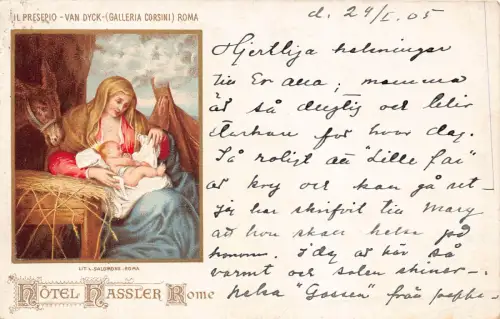 IL PRESEPIO - VAN DYCK - (GALLERIA CORSINI) ROMA
d. 24/I. 05
Hjertliga helsningar
till Er alla; mamma
är så duglig och blir
starkare för hvar dag.
Så roligt att "Lille far"
är kry och kan gå ut -
Jag har skrifvit till Mary
att hon skall helsa på
honom. I dag är här så
varmt och solen skiner -
helsa "Gossen" från pappa -
LIT. L. SALOMONE - ROMA
HÔTEL HASSLER Rome